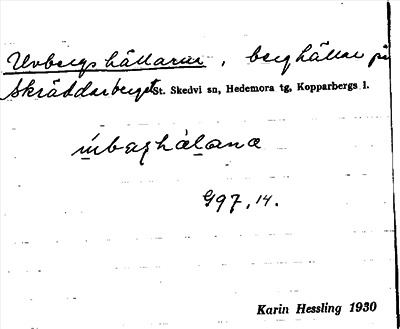 Uvbergshällarna, berghällar på
Skräddarberget St. Skedvi sn, Hedemora tg, Kopparbergs l.
G97, 14.
Karin Hessling 1930